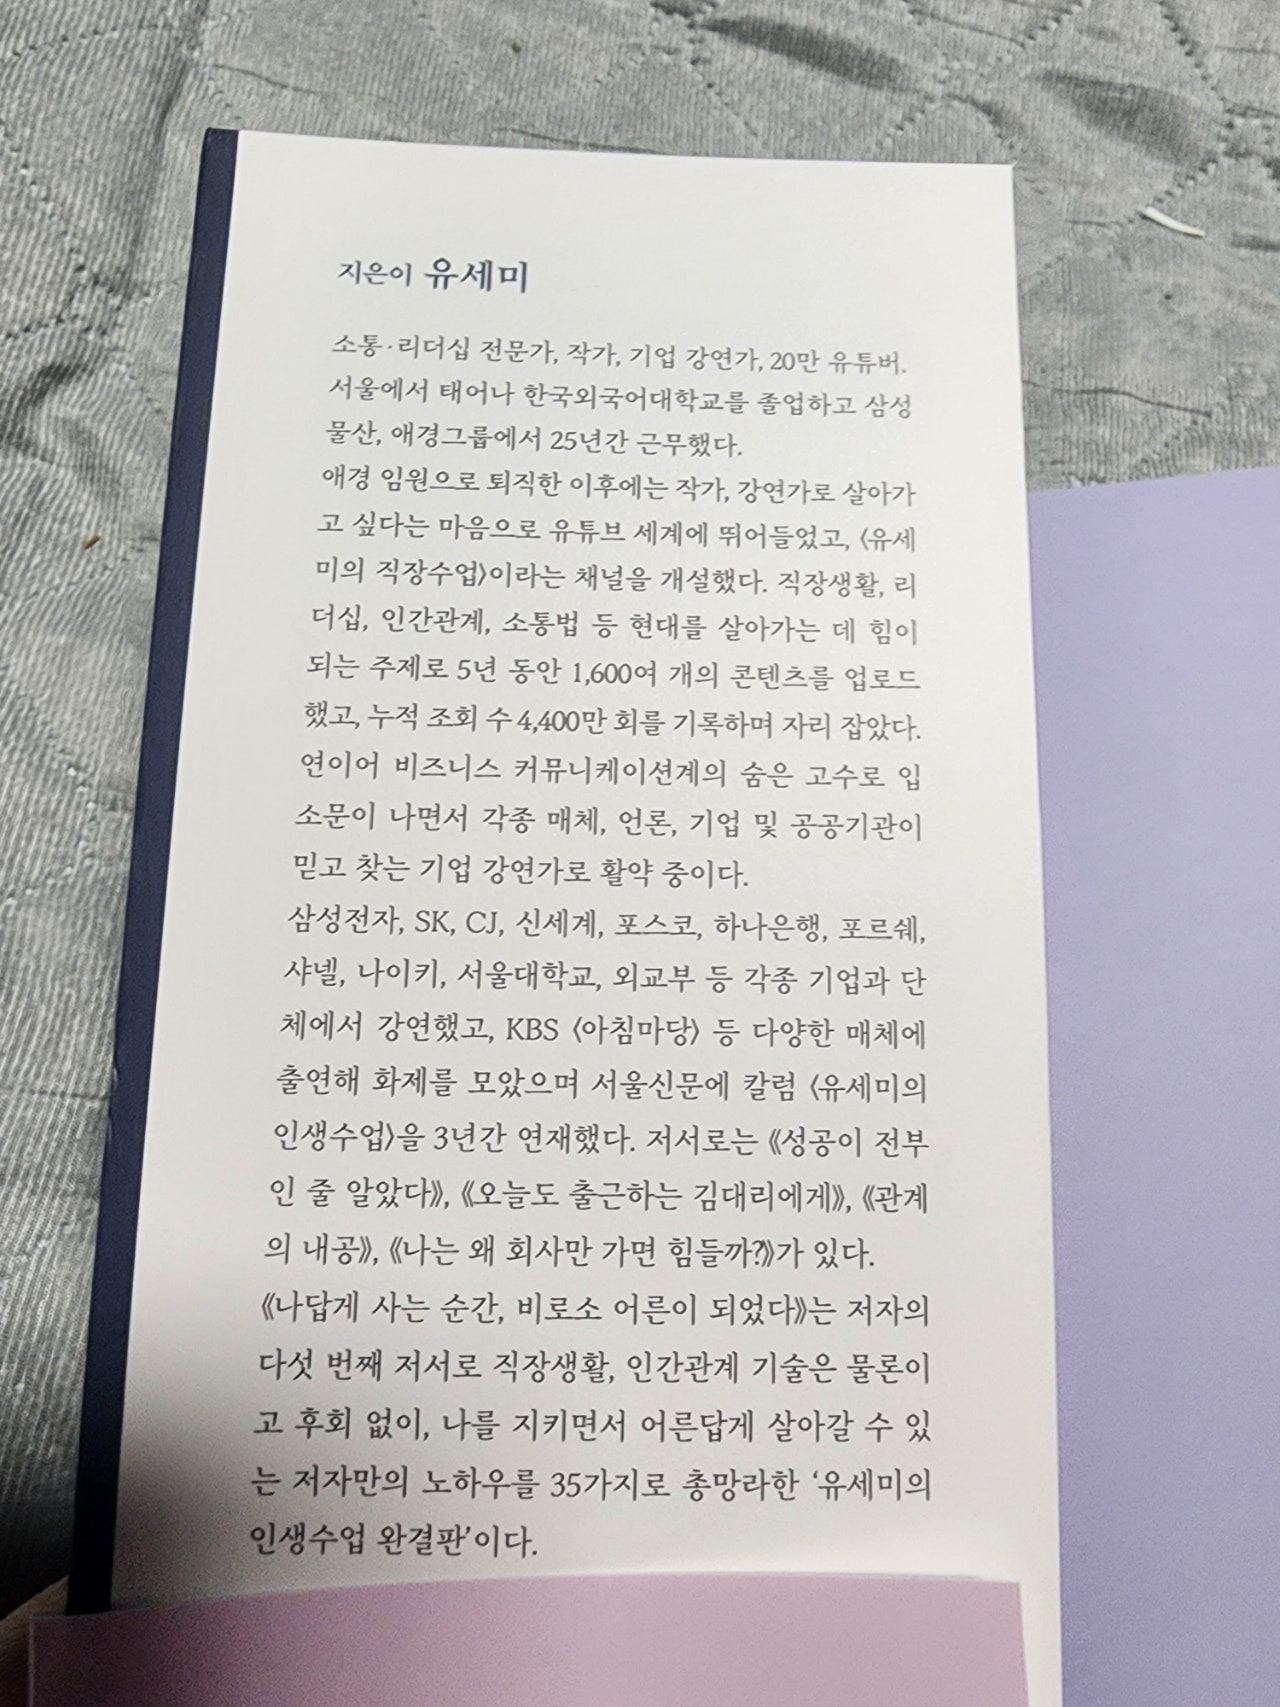 지은이 유세미
소통·리더십 전문가, 작가, 기업 강연가, 20만 유튜버.
서울에서 태어나 한국외국어대학교를 졸업하고 삼성
물산, 애경그룹에서 25년간 근무했다.
애경 임원으로 퇴직한 이후에는 작가, 강연가로 살아가
고 싶다는 마음으로 유튜브 세계에 뛰어들었고, 〈유세
미의 직장수업〉이라는 채널을 개설했다. 직장생활, 리
더십, 인간관계, 소통법 등 현대를 살아가는 데 힘이
되는 주제로 5년 동안 1,600여 개의 콘텐츠를 업로드
했고, 누적 조회 수 4,400만 회를 기록하며 자리 잡았다.
연이어 비즈니스 커뮤니케이션계의 숨은 고수로 입
소문이 나면서 각종 매체, 언론, 기업 및 공공기관이
믿고 찾는 기업 강연가로 활약 중이다.
삼성전자, SK, CJ, 신세계, 포스코, 하나은행, 포르쉐,
샤넬, 나이키, 서울대학교, 외교부 등 각종 기업과 단
체에서 강연했고, KBS 〈아침마당〉 등 다양한 매체에
출연해 화제를 모았으며 서울신문에 칼럼 〈유세미의
인생수업〉을 3년간 연재했다. 저서로는 《성공이 전부
인 줄 알았다》, 《오늘도 출근하는 김대리에게》, 《관계
의 내공》, 《나는 왜 회사만 가면 힘들까?》가 있다.
《나답게 사는 순간, 비로소 어른이 되었다》는 저자의
다섯 번째 저서로 직장생활, 인간관계 기술은 물론이
고 후회 없이, 나를 지키면서 어른답게 살아갈 수 있
는 저자만의 노하우를 35가지로 총망라한 ‘유세미의
인생수업 완결판’이다.